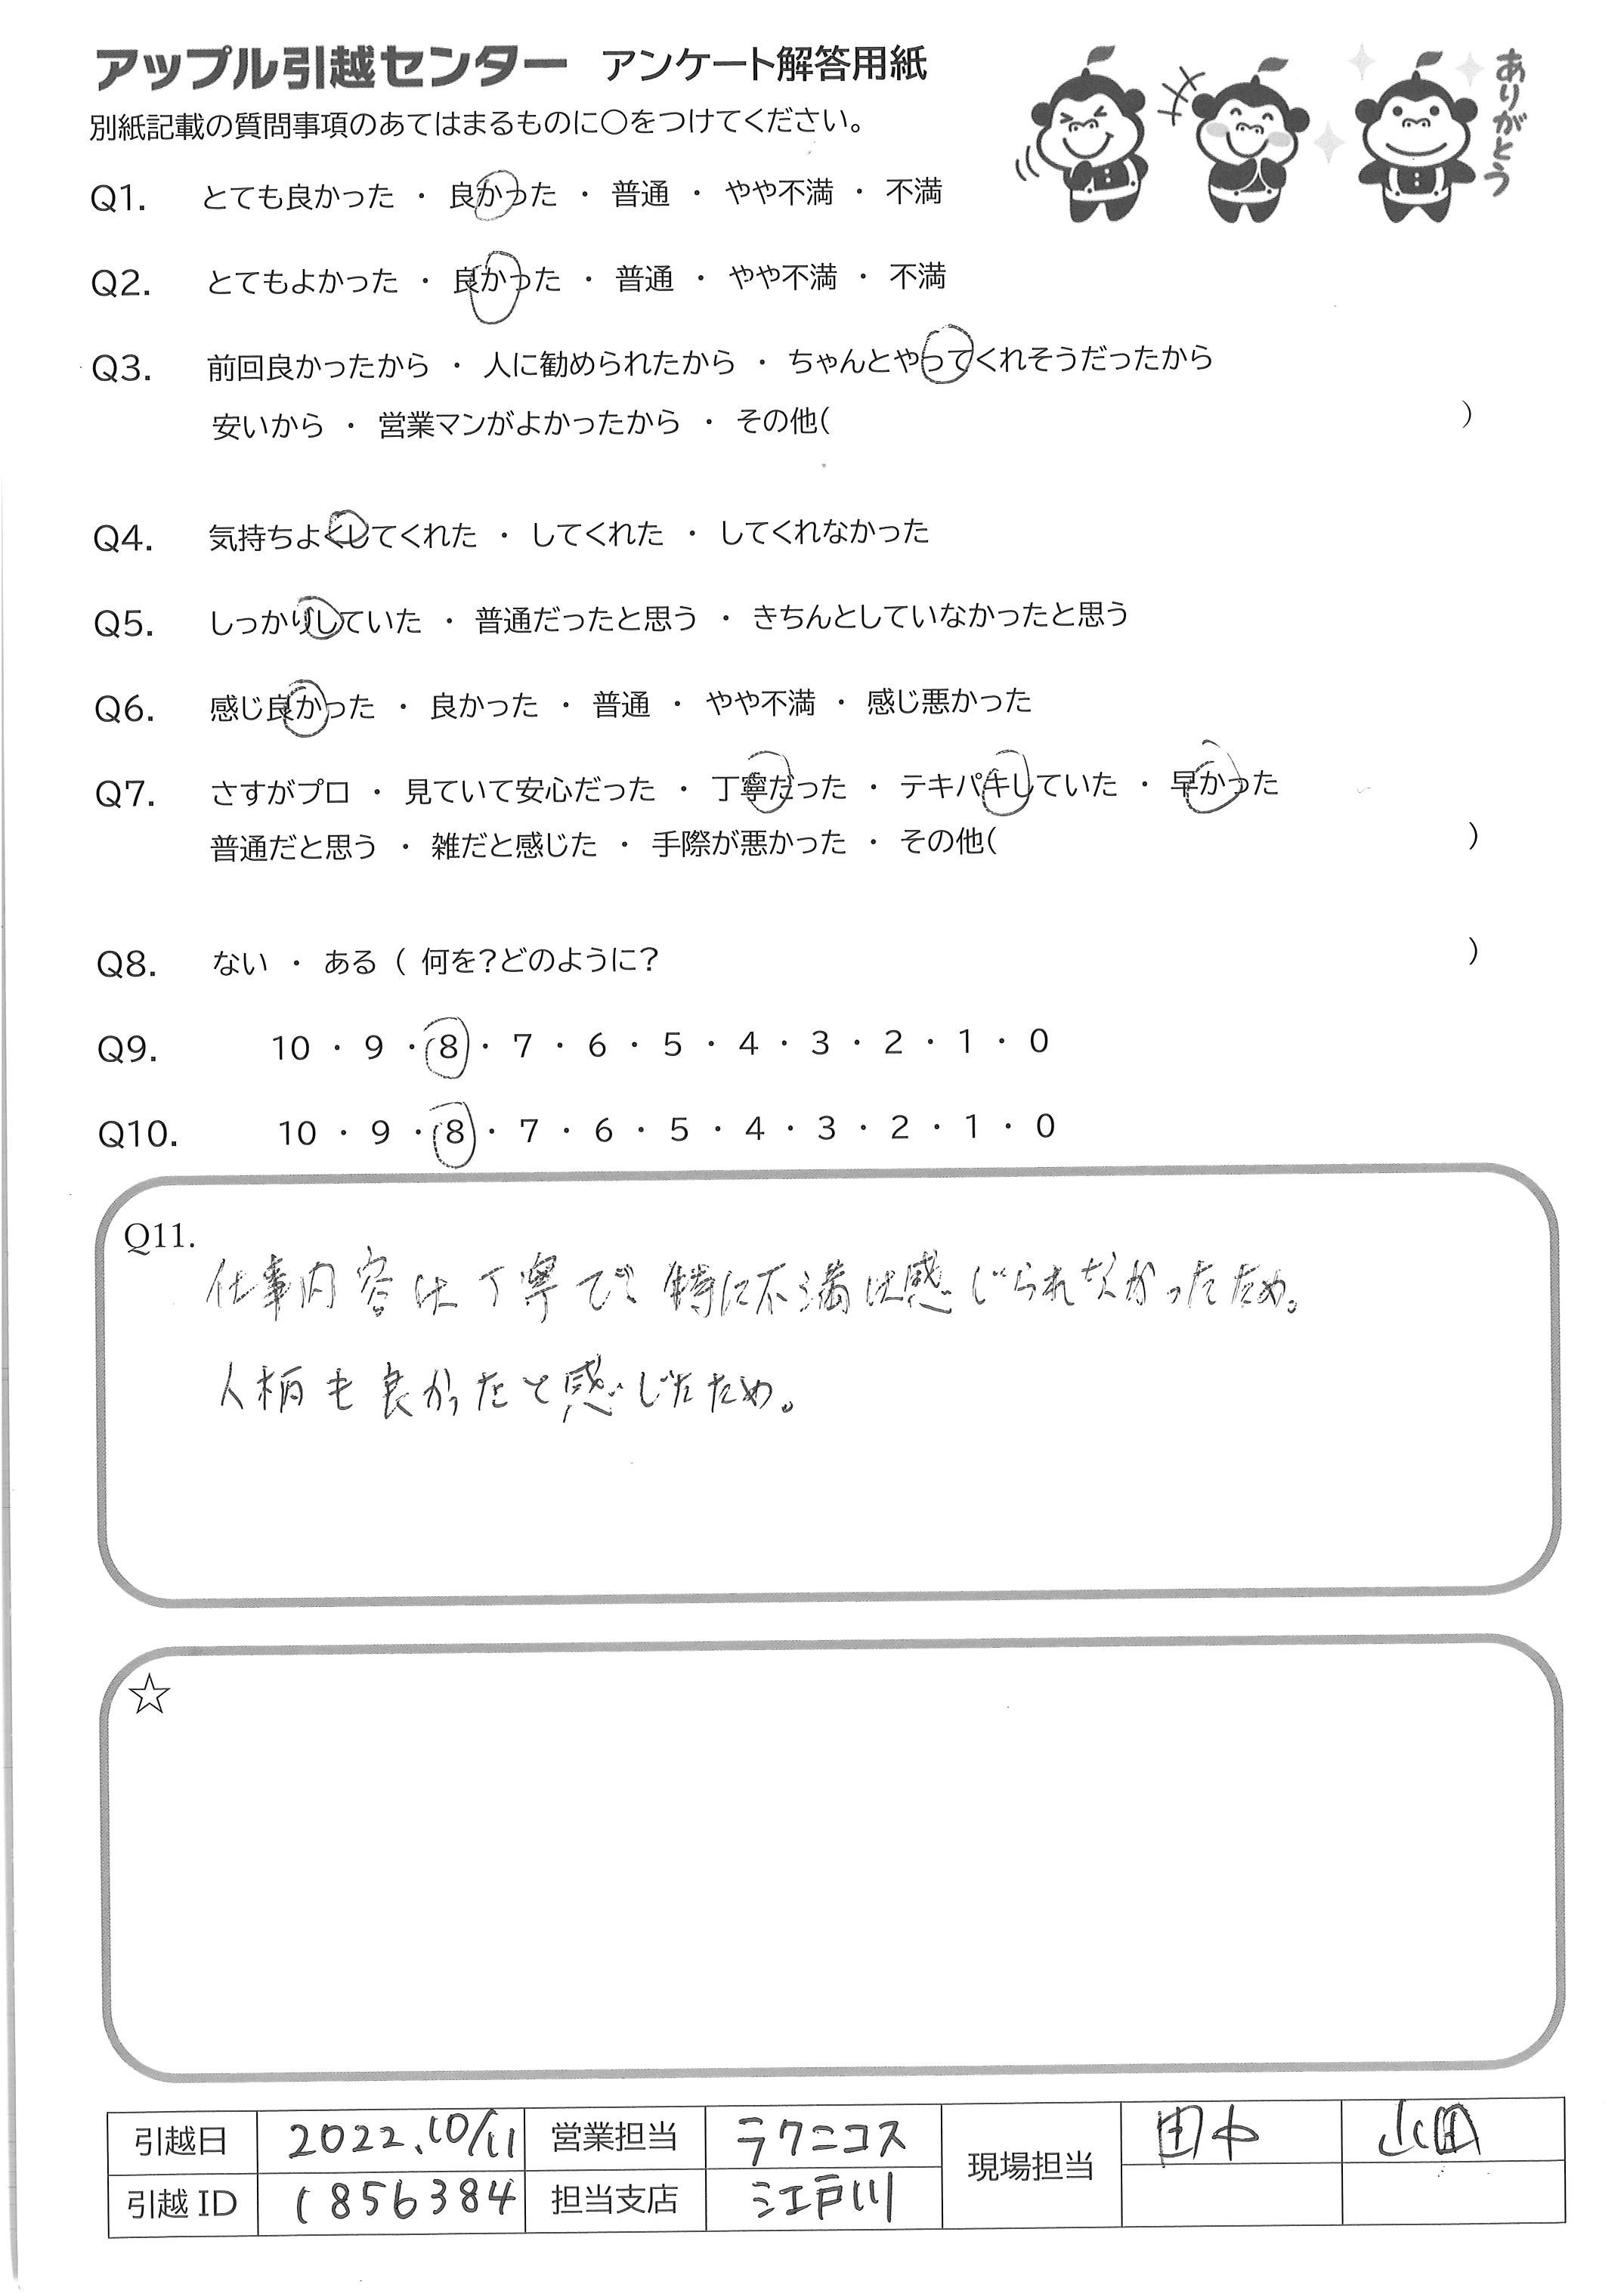 アップル引越センター アンケート解答用紙
別紙記載の質問事項のあてはまるものに○をつけてください。
ありがとう
Q1. とても良かった ・ 良かった ・ 普通 ・ やや不満 ・ 不満
Q2. とてもよかった ・ 良かった ・ 普通 ・ やや不満 ・ 不満
Q3. 前回良かったから ・ 人に勧められたから ・ ちゃんとやってくれそうだったから
安いから ・ 営業マンがよかったから ・ その他( )
Q4. 気持ちよくしてくれた ・ してくれた ・ してくれなかった
Q5. しっかりしていた ・ 普通だったと思う ・ きちんとしていなかったと思う
Q6. 感じ良かった ・ 良かった ・ 普通 ・ やや不満 ・ 感じ悪かった
Q7. さすがプロ ・ 見ていて安心だった ・ 丁寧だった ・ テキパキしていた ・ 早かった
普通だと思う ・ 雑だと感じた ・ 手際が悪かった ・ その他( )
Q8. ない ・ ある ( 何を?どのように? )
Q9. 10 ・ 9 ・ 8 ・ 7 ・ 6 ・ 5 ・ 4 ・ 3 ・ 2 ・ 1 ・ 0
Q10. 10 ・ 9 ・ 8 ・ 7 ・ 6 ・ 5 ・ 4 ・ 3 ・ 2 ・ 1 ・ 0
Q11.
仕事内容は丁寧で特に不満は感じられなかったため。
人柄も良かったと感じたため。
☆
引越日 2022.10/11 営業担当 ラクニコス 現場担当 田中 山田
引越ID 1856384 担当支店 江戸川